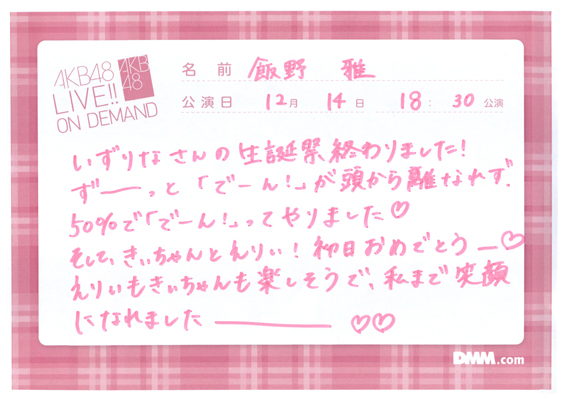 AKB48
LIVE!!
ON DEMAND
AKB
48
名前 飯野 雅
公演日 12月 14日 18:30公演
いずりなさんの生誕祭終わりました!
ず――っと「でーん!」が頭から離なれず、
50%で「でーん!」ってやりました♡
そして、きぃちゃんとえりぃ!初日おめでとうー♡
えりぃもきぃちゃんも楽しそうで、私まで笑顔
になれました――――♡♡
DMM.com